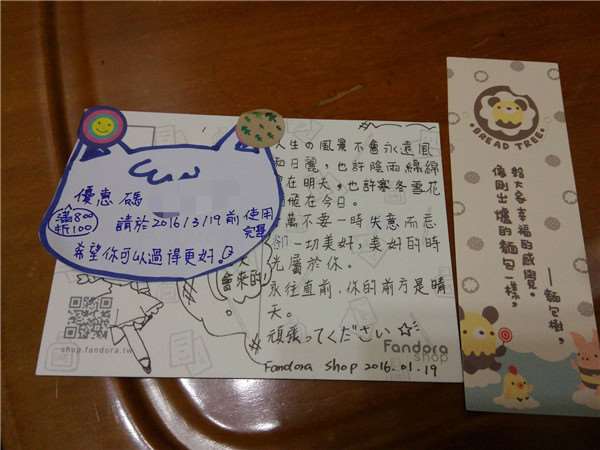 優惠碼
滿800
折100
請於2016/3/19前使用
完畢
希望你可以過得更好。
人生の風景不會永遠風
和日麗，也許陰雨綿綿
在明天，也許寒冬雪花
在今日。
萬不要一時失意而忘
卻一切美好，美好的時
光屬於你。
永往直前，你的前方是晴
天。
頑張ってください☆
會來的
shop.fandora.tw
Fandora
shop
Fandora shop 2016.01.19
BREAD TREE
給大家幸福的感覺。
像剛出爐的麵包一樣，
——麵包樹。